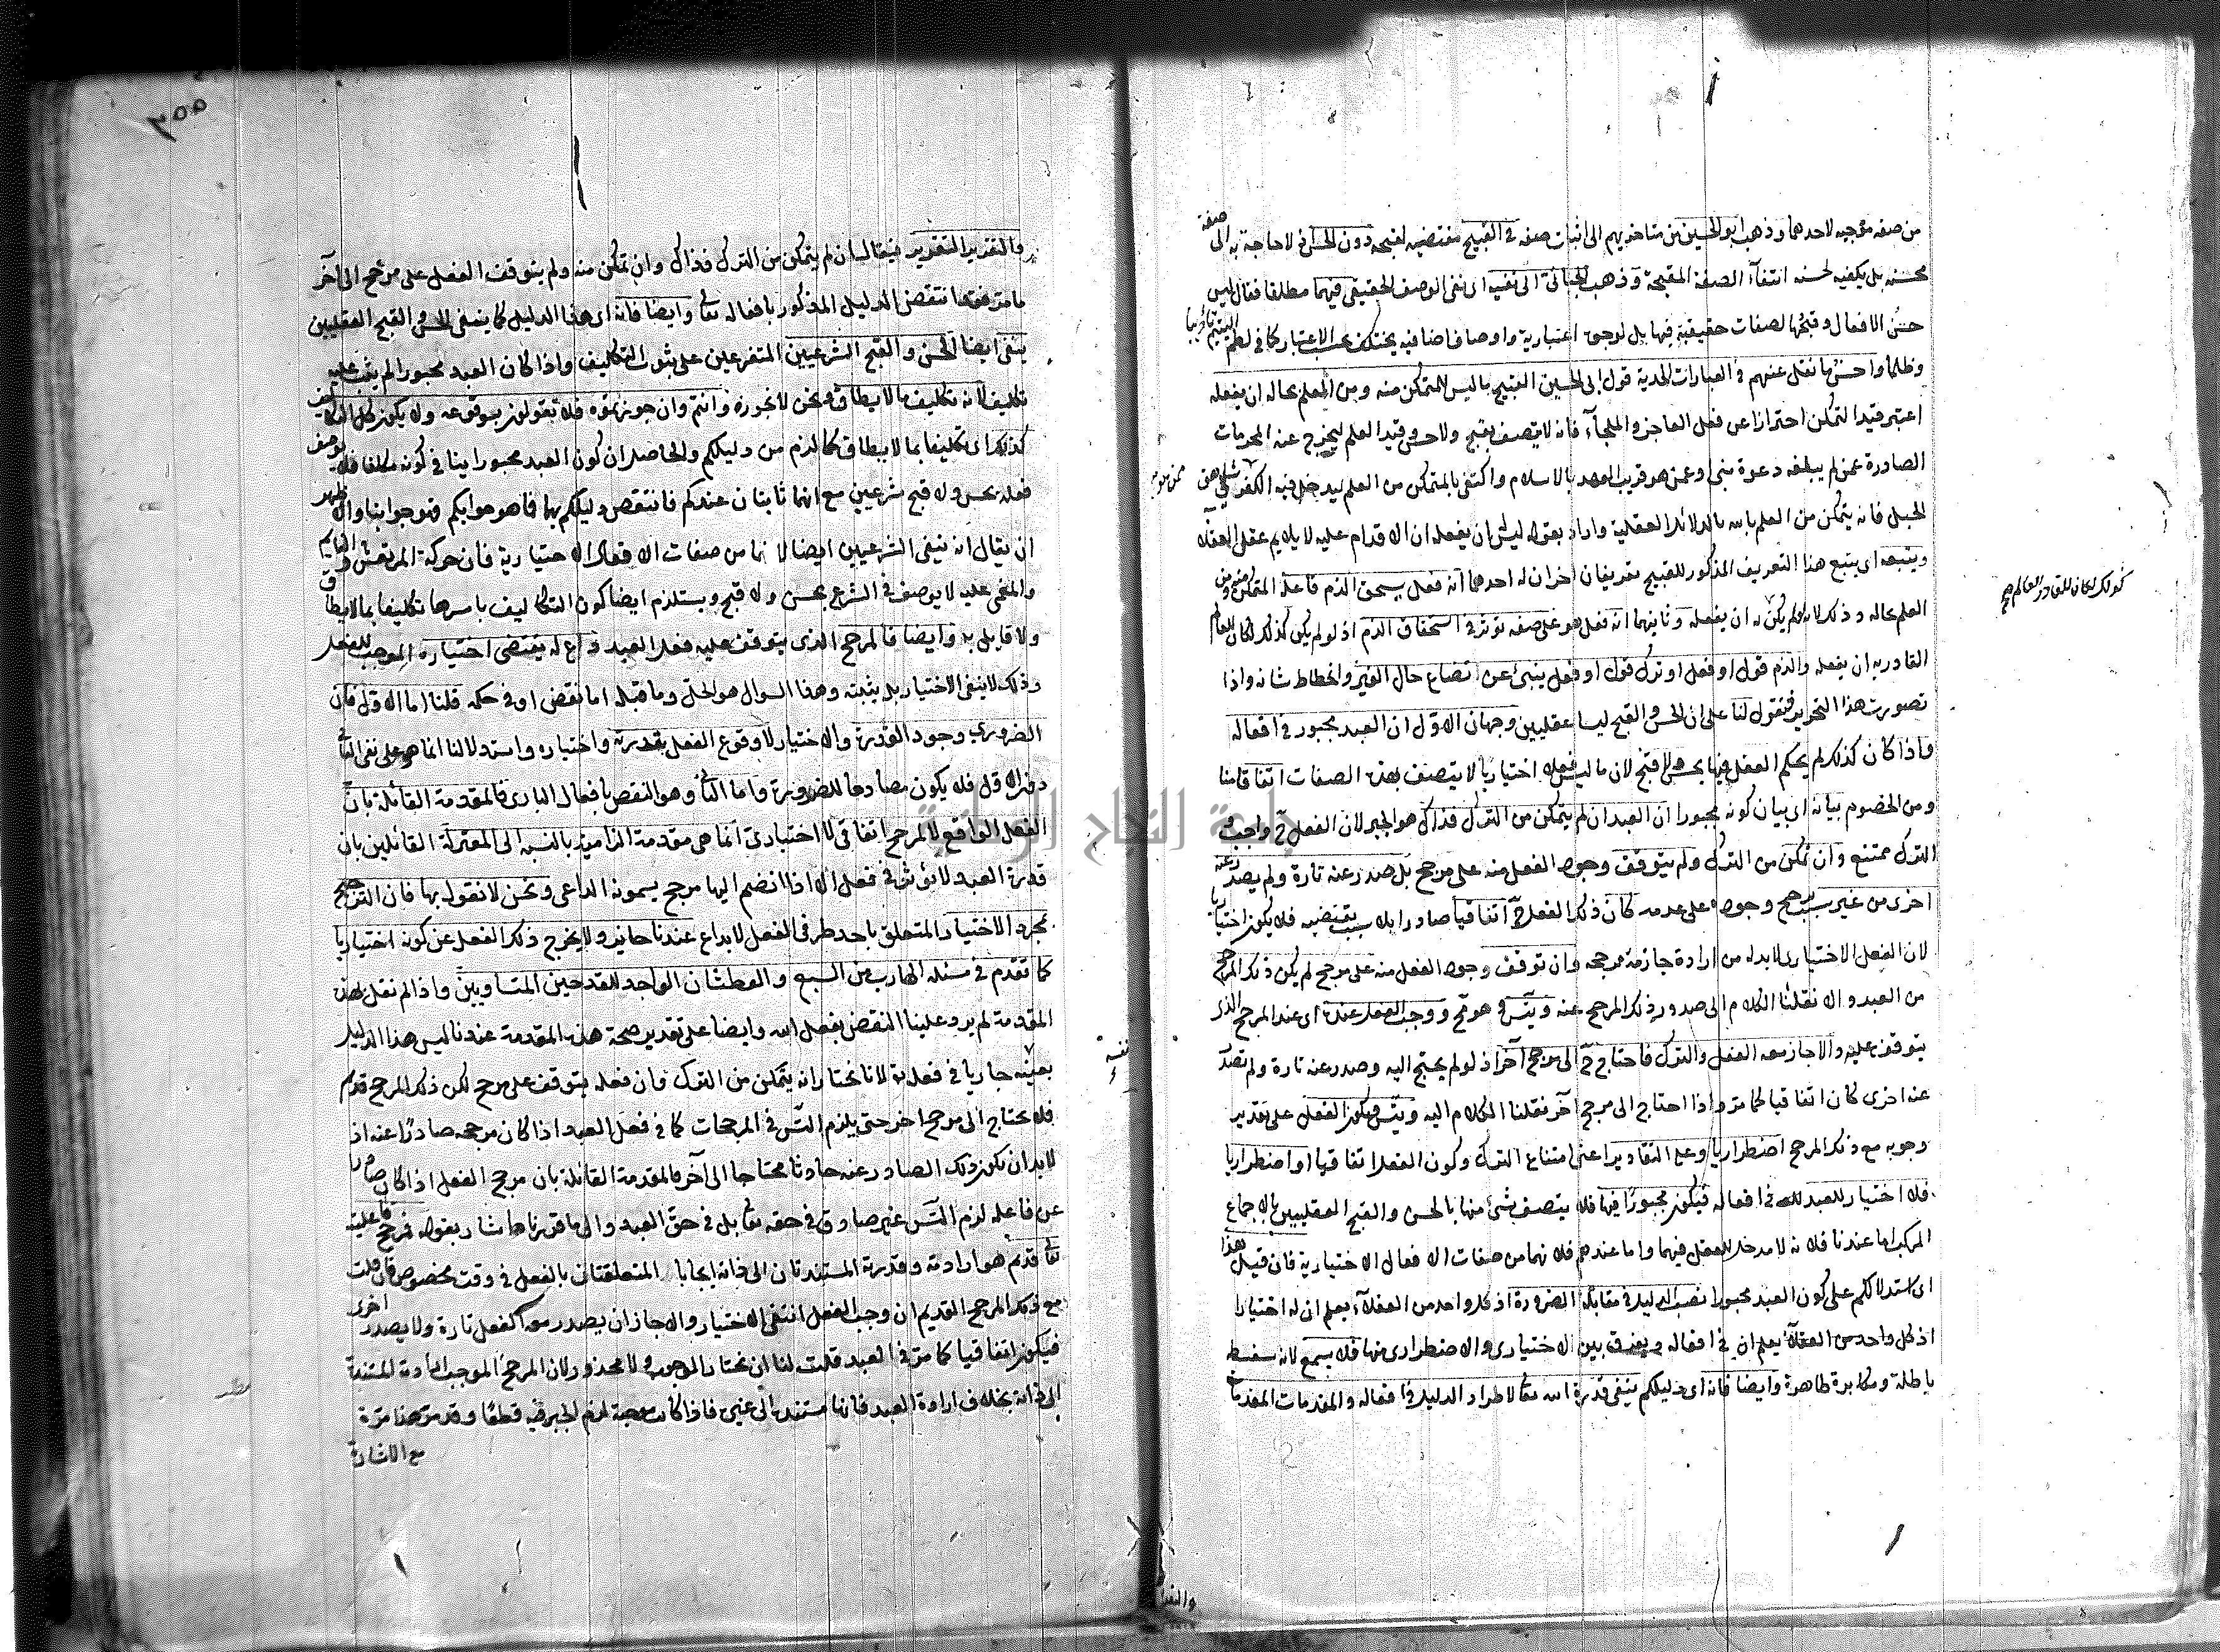 من صفة موجبة لاحدهما وذهب ابو الحسين من متاخريهم الى اثبات صفة في القبيح مقتضية لقبحه دون الحسن اذ لا حاجة به الى صفة
محسنة بل يكفيه لحسنه انتفاء الصفة المقبحة وذهب الجبائى الى نفيه اى نفى الوصف الحقيقى فيهما مطلقا فقال ليس
حسن الافعال وقبحها لصفات حقيقية فيها بل لوجوه اعتبارية واوصاف اضافية يختلف بحسب الاعتبار كما في لطم اليتيم تأديبا
وظلما واحسن ما نقل عنهم في العبارات الحدية قول ابى الحسين القبيح ما ليس للمتمكن منه ومن العلم بحاله ان يفعله
اعتبر قيد التمكن احترازا عن فعل العاجز والملجأ فانه لا يتصف بقبح ولا حسن وقيد العلم ليخرج عنه المحرمات
الصادرة عمن لم يبلغه دعوة نبى او عمن هو قريب العهد بالاسلام واكتفى بالتمكن من العلم ليدخل فيه الكفر ممن في شاهق
الجبل فانه يتمكن من العلم بالله بالدلائل العقلية واراد بقوله ليس له ان يفعله ان الاقدام عليه لا يلايم عقل العقلاء
ويتبعه اى يتبع هذا التعريف المذكور للقبيح تعريفان اخران له احدهما انه فعل يستحق الذم فاعله المتمكن منه ومن
العلم بحاله وذلك لانه لم يكن له ان يفعله وثانيهما انه فعل هو على صفة تؤثر في استحقاق الذم اذ لو لم يكن كذلك لكان للعالم
القادر به ان يفعله والذم قول او فعل او ترك قول او فعل ينبئ عن اتضاع حال الغير وانحطاط شانه واذا
تصورت هذا التحرير فنقول لنا على ان الحسن والقبح ليسا عقليين وجهان الاول ان العبد مجبور في افعاله
واذا كان كذلك لم يحكم العقل فيها بحسن ولا قبح لان ما ليس فعلا اختياريا لا يتصف بهذه الصفات اتفاقا منا
ومن الخصوم بيانه اى بيان كونه مجبورا ان العبد ان لم يتمكن من الترك فذاك هو الجبر لان الفعل ح واجب و
الترك ممتنع وان تمكن من الترك ولم يتوقف وجود الفعل منه على مرجح بل صدر عنه تارة ولم يصدر عنه
اخرى من غير سبب يرجح وجوده على عدمه كان ذلك الفعل ح اتفاقيا صادرا بلا سبب يقتضيه فلا يكون اختياريا
لان الفعل الاختيارى لا بد له من ارادة جازمة مرجحة وان توقف وجود الفعل منه على مرجح لم يكن ذلك المرجح
من العبد والا نقلنا الكلام الى صدور ذلك المرجح عنه ويتس وهو مح ووجب الفعل عنده اى عند المرجح الذى
يتوقف عليه والا جاز معه الفعل والترك فاحتاج ح الى مرجح آخر اذ لو لم يحتج اليه وصدر عنه تارة ولم يصدر
عنه اخرى كان اتفاقيا كما مر واذا احتاج الى مرجح آخر نقلنا الكلام اليه ويتس فيكون الفعل على تقدير
وجوبه مع ذلك المرجح اضطراريا وعلى التقادير اعنى امتناع الترك وكون الفعل اتفاقيا او اضطراريا
فلا اختيار للعبد في افعاله فيكون مجبورا فيها فلا يتصف شئ منها بالحسن والقبح العقليين بالاجماع
المركب اما عندنا فلانه لا مدخل للعقل فيهما واما عندهم فلانهما من صفات الافعال الاختيارية فان قيل هذا
اى استدلالكم على كون العبد مجبورا نصب الدليل في مقابلة الضرورة اذ كل واحد من العقلاء يعلم ان له اختيارا
اذ كل واحد من العقلاء يعلم ان في افعاله ويفرق بين الاختيارى والاضطرارى منها فلا يسمع لانه سفسطة
باطلة ومكابرة ظاهرة وايضا فانه اى دليلكم ينفى قدرة الله تعالى لاطراد الدليل في افعاله والمقدمات المقدمات
كذلك لكان للقادر العالم صح
والتقرير التقرير فيقال ان لم يتمكن من الترك فذاك وان تمكن منه ولم يتوقف الفعل على مرجح الى آخر
ما مر فقد انتقض الدليل المذكور بافعاله تعالى وايضا فانه اى هذا الدليل كما ينفى الحسن والقبح العقليين
ينفى ايضا الحسن والقبح الشرعيين المتفرعين على ثبوت التكليف واذا كان العبد مجبورا لم يثبت عليه
تكليف لانه تكليف ما لا يطاق ونحن لا نجوزه وانتم وان جوزتموه فلا تقولون بوقوعه ولا يكون كل التكاليف
كذلك اى تكليفا بما لا يطاق كما لزم من دليلكم والحاصل ان كون العبد مجبورا ينافى كونه مكلفا فلا يوصف
فعله بحسن ولا قبح شرعيين مع انهما ثابتان عندكم فانتقض دليلكم بهما فما هو جوابكم فهو جوابنا والاظهر
ان يقال انه ينفى الشرعيين ايضا لانهما من صفات الافعال الاختيارية فان حركة المرتعش والنايم
والمغمى عليه لا يوصف في الشرع بحسن ولا قبح ويستلزم ايضا كون التكاليف باسرها تكليفا بما لا يطاق
ولا قايل به وايضا فالمرجح الذى يتوقف عليه فعل العبد داع له يقتضى اختياره الموجب للفعل
وذلك لا ينفى الاختيار بل يثبته وهذا السوال هو الحل وما قبله اما نقض او في حكمه قلنا اما الاول فان
الضرورى وجود القدرة والاختيار لا وقوع الفعل بقدرته واختياره واستدلالنا انما هو على نفى الثانى
دون الاول فلا يكون مصادما للضرورة واما الثانى وهو النقض بافعال البارى فالمقدمة القائلة بان
الفعل الواقع لا لمرجح اتفاقى لا اختيارى انما هى مقدمة الزامية بالنسبة الى المعتزلة القائلين بان
قدرة العبد لا تؤثر في فعل الا اذا انضم اليها مرجح يسمونه الداعى ونحن لا نقول بها فان الترجيح
بمجرد الاختيار المتعلق باحد طرفى الفعل لا لداع عندنا جائز ولا يخرج ذلك الفعل عن كونه اختياريا
كما تقدم في مسئلة الهارب من السبع والعطشان الواجد للقدحين المتساويين واذا لم نقل بهذه
المقدمة لم يرد علينا النقض بفعل الله وايضا على تقدير صحة هذه المقدمة عندنا ليس هذا الدليل
بعينه جاريا في فعله تعالى لانا نختار انه يتمكن من الترك وان فعله يتوقف على مرجح لكن ذلك المرجح قديم
فلا يحتاج الى مرجح اخر حتى يلزم التس في المرجحات كما في فعل العبد اذا كان مرجحه صادرا عنه اذ
لا بد ان يكون ذلك الصادر عنه حادثا محتاجا الى آخر فالمقدمة القائلة بان مرجح الفعل اذا كان صادرا
عن فاعله لزم التس غير صادق في حقه تعالى بل في حق العبد والى ما قررناه اشار بقوله فمرجح فاعليته
تعالى قديم هو ارادته وقدرته المستندتان الى ذاته ايجابا المتعلقتان بالفعل في وقت مخصوص فان قلت
مع ذلك المرجح القديم ان وجب الفعل انتفى الاختيار والا جاز ان يصدر معه الفعل تارة ولا يصدر اخرى
فيكون اتفاقيا كما مر في العبد قلت لنا ان نختار الوجوب ولا محذور لان المرجح الموجب ارادته المستندة
الى ذاته بخلاف ارادة العبد فانها مستندة الى غيره فاذا كانت موجبة لزم الجبر فيه قطعا وقد مر هذا مرة
مع الاشارة